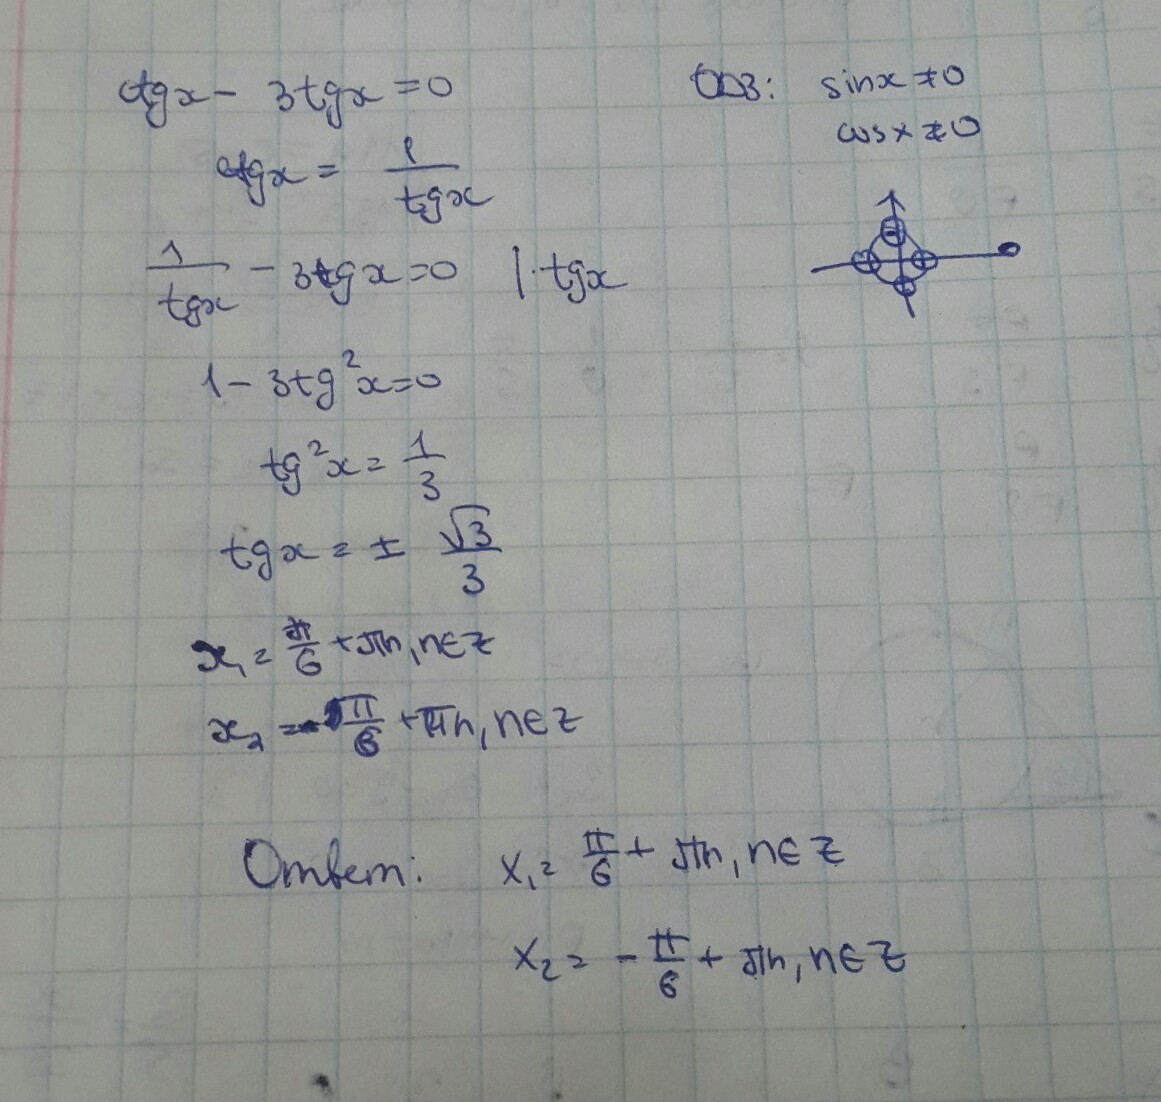 ctgx - 3tgx = 0
ОДЗ: sinx ≠ 0
cosx ≠ 0
ctgx = 1/tgx
1/tgx - 3tgx = 0 | · tgx
1 - 3tg²x = 0
tg²x = 1/3
tgx = ± √3/3
x₁ = π/6 + πn, n ∈ Z
x₂ = - π/6 + πn, n ∈ Z
Ответ: x₁ = π/6 + πn, n ∈ Z
x₂ = - π/6 + πn, n ∈ Z